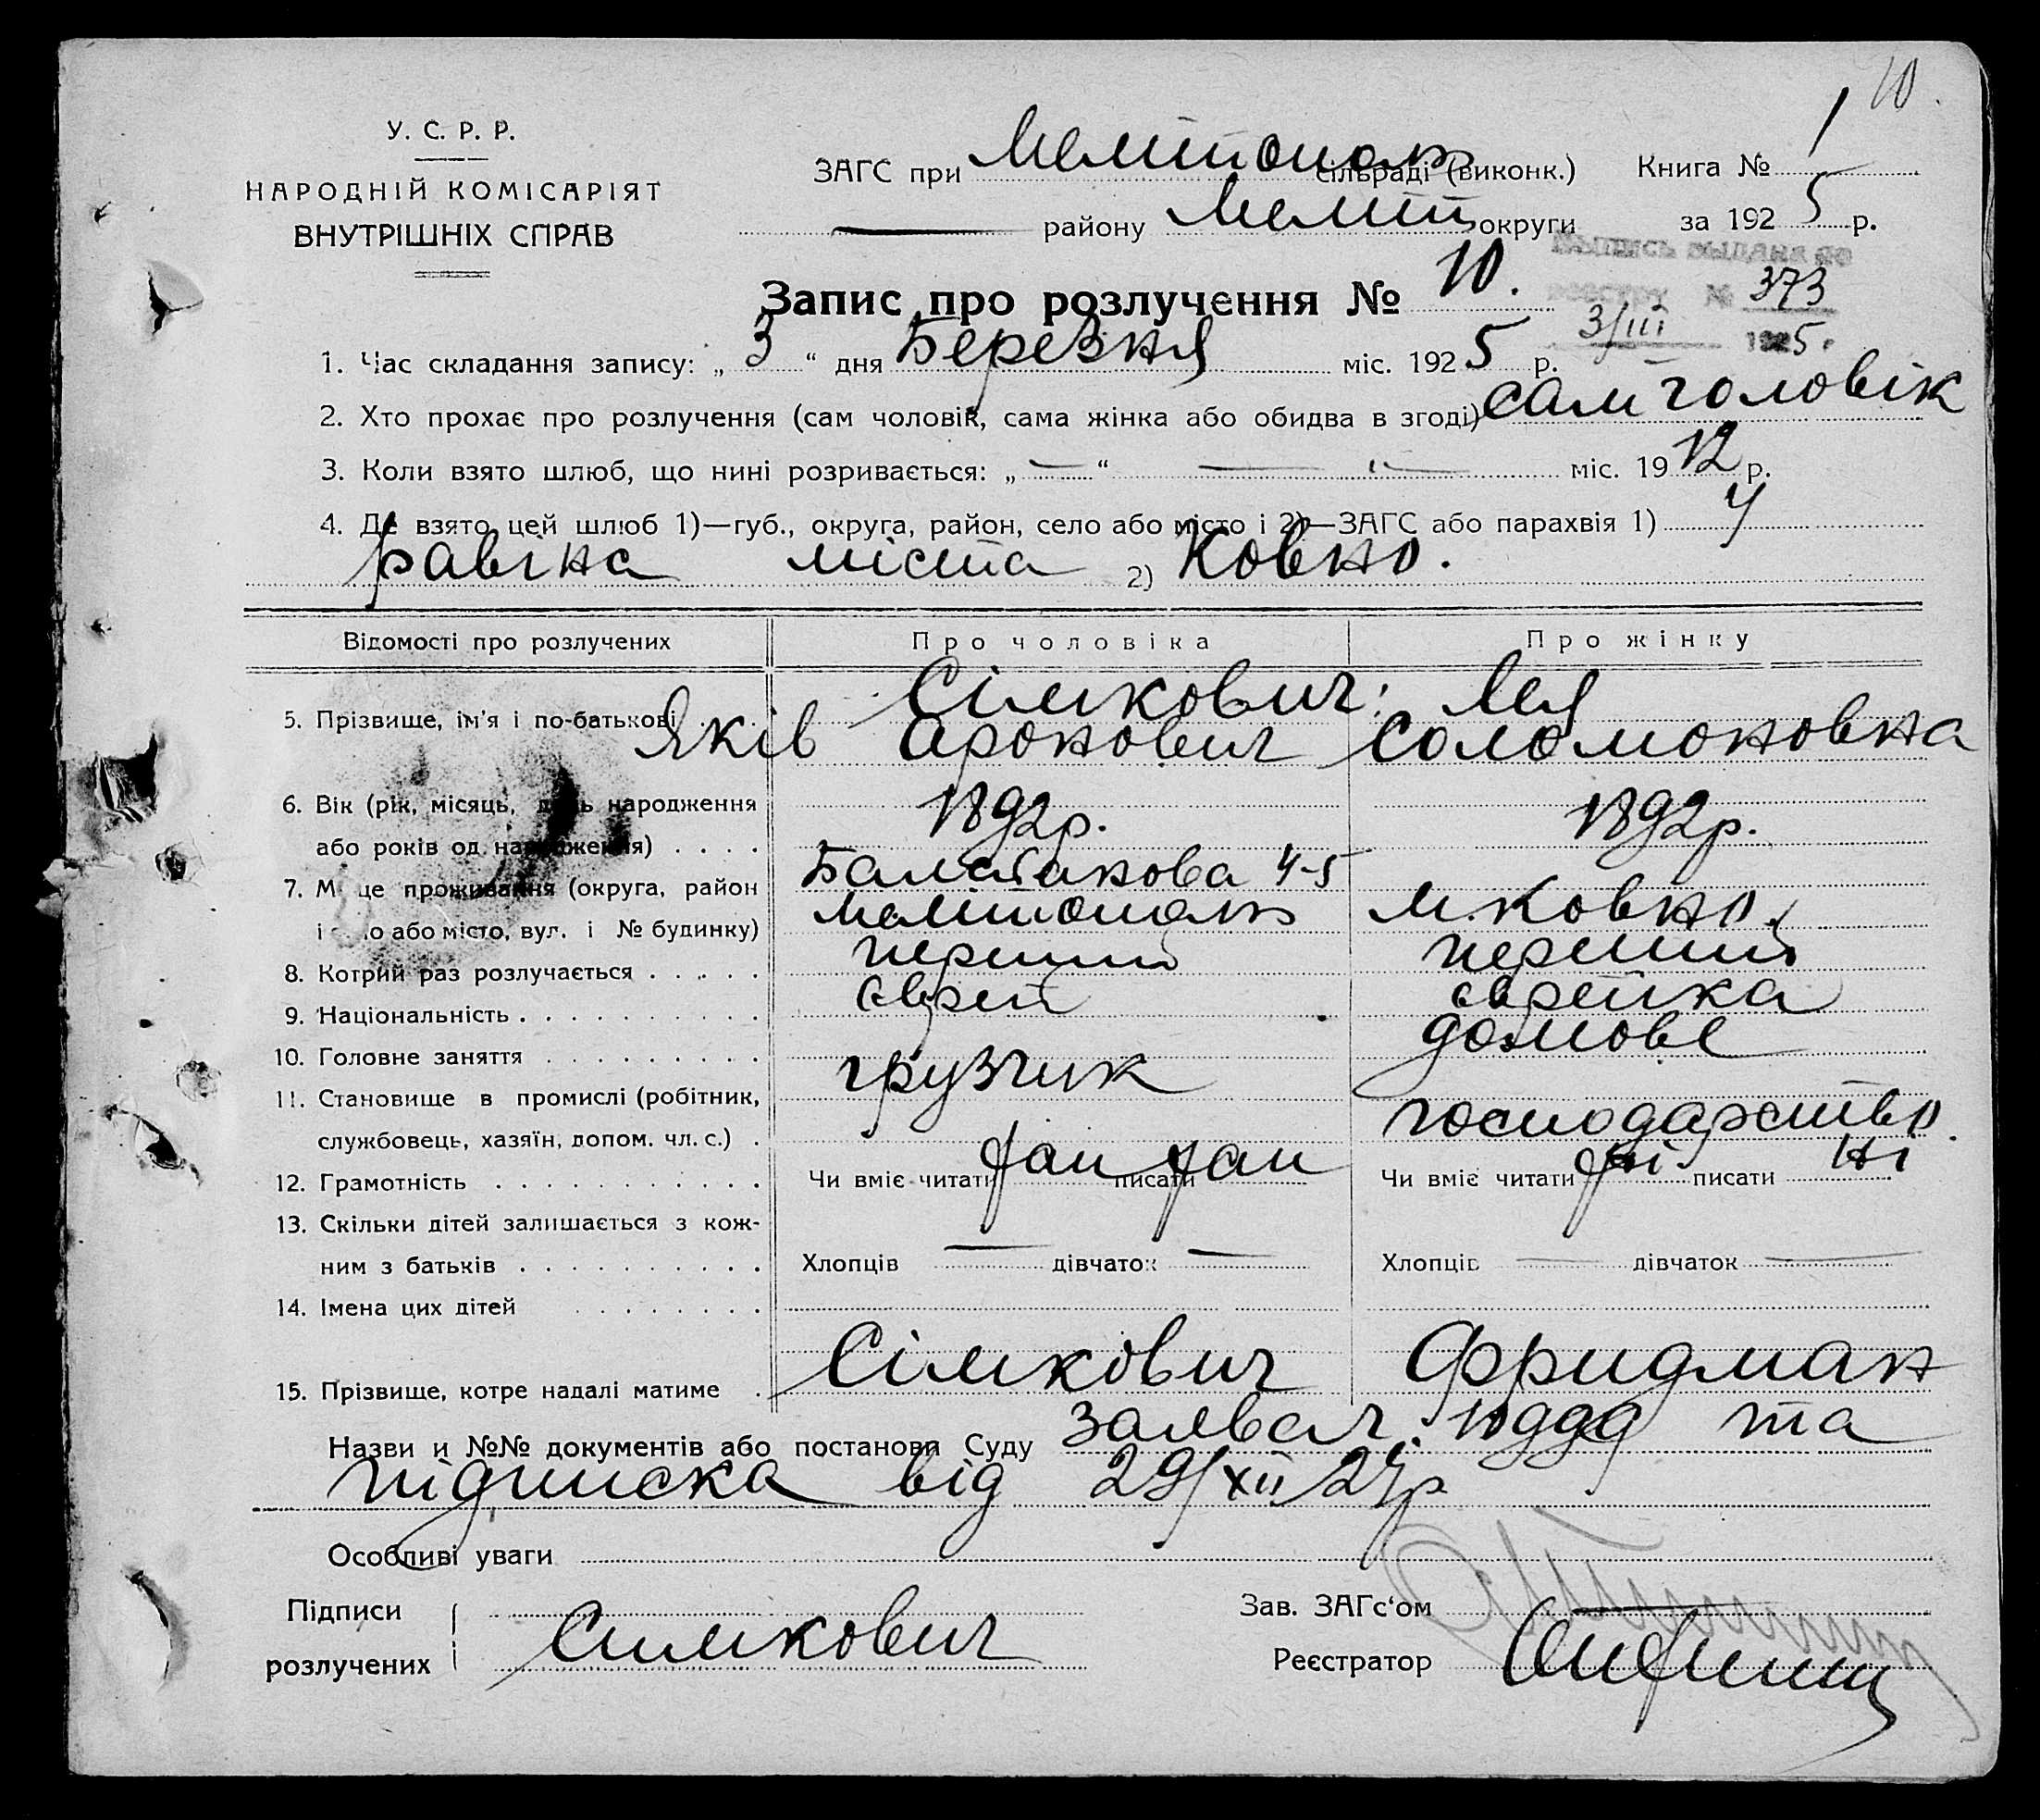 10.
У. С. Р. Р.
НАРОДНІЙ КОМІСАРІЯТ
ВНУТРІШНІХ СПРАВ
ЗАГС при Мелітополь сільраді (виконк.) Книга № 1
району Меліт округи за 1925 р.
Выпись выдана по
реестру № 373
3/III 1925.
Запис про розлучення № 10.
1. Час складання запису: „ 3 “ дня Березня міс. 1925 р.
2. Хто прохає про розлучення (сам чоловік, сама жінка або обидва в згоді) сам чоловік
3. Коли взято шлюб, що нині розривається: „ — “ — міс. 1912 р.
4. Де взято цей шлюб 1)—губ., округа, район, село або місто і 2)—ЗАГС або парахвія 1) У
равіна міста 2) Ковно.
Відомості про розлучених Про чоловіка Про жінку
5. Прізвище, ім'я і по-батькові Сімкович: Лея
Яків Аронович Соломоновна
6. Вік (рік, місяць, день народження 1892р. 1892р.
або років од народження) . . . .
7. Місце проживання (округа, район 4-5
і село або місто, вул. і № будинку) Мелітополь м. Ковно.
8. Котрий раз розлучається . . . . . перший перший
9. Національність . . . . . . . . . . єврей єврейка
10. Головне заняття . . . . . . . . . грузчик домове
11. Становище в промислі (робітник,
службовець, хазяїн, допом. чл. с.) . господарство.
12. Грамотність . . . . . . . . . . . Чи вміє читати писати Чи вміє читати ні писати ні
13. Скільки дітей залишається з кож-
ним з батьків . . . . . . . . . . Хлопців — дівчаток — Хлопців — дівчаток —
14. Імена цих дітей . . . . . . . .
15. Прізвище, котре надалі матиме . Сімкович Фридман
Назви и №№ документів або постанови Суду та
підписка від 29/XII 24р
Особливі уваги
Підписи
розлучених Симкович
Зав. ЗАГс‘ом
Реєстратор